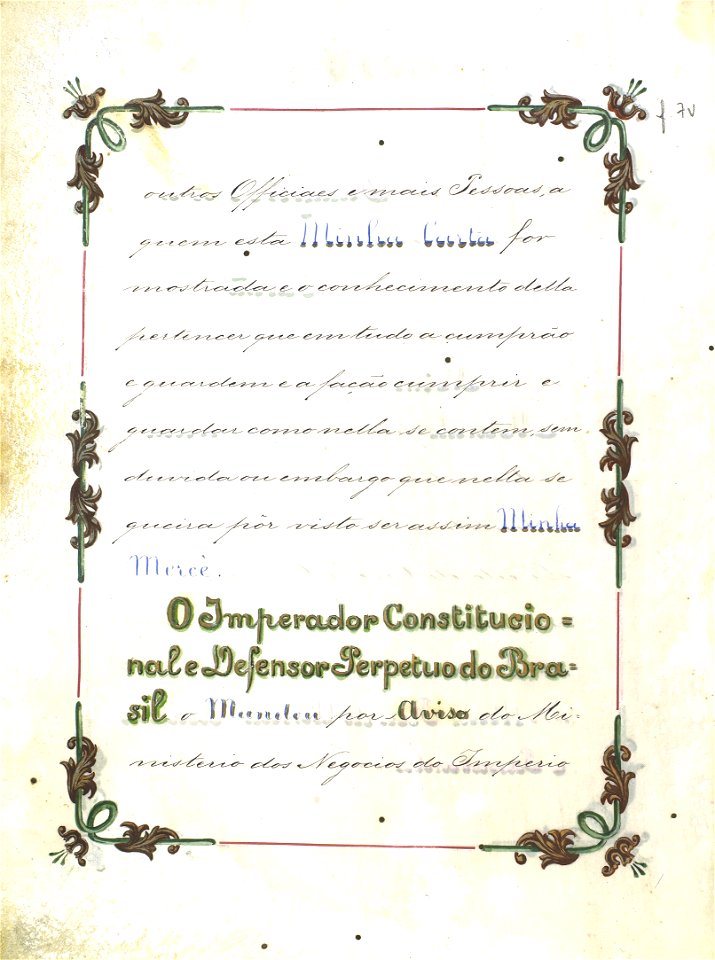 f 7v
outros Officiaes e mais Pessoas, a
quem esta Minha Carta for
mostrada e o conhecimento della
pertencer que em tudo a cumprão
e guardem e a fação cumprir e
guardar como nella se contêm, sem
duvida ou embargo que nella se
queira pôr visto ser assim Minha
Mercê.
O Imperador Constitucio=
nal e Defensor Perpetuo do Bra=
sil o Mandou por Aviso do Mi=
nisterio dos Negocios do Imperio